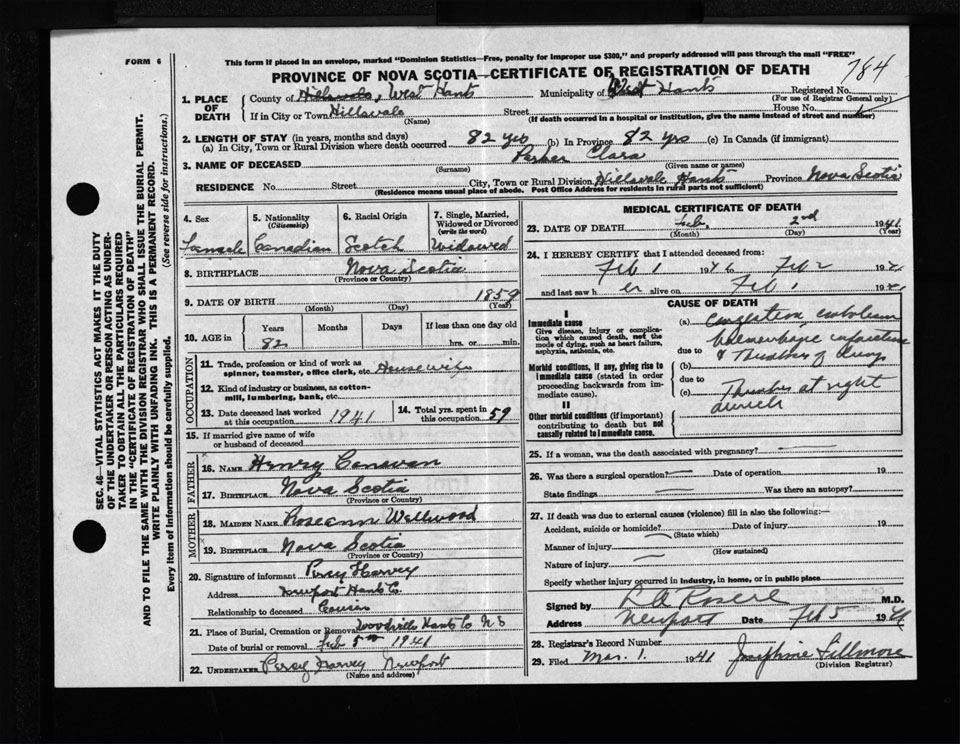 FORM 6
This form if placed in an envelope, marked "Dominion Statistics—Free, penalty for improper use $300," and properly addressed will pass through the mail "FREE"
784
PROVINCE OF NOVA SCOTIA—CERTIFICATE OF REGISTRATION OF DEATH
1. PLACE OF DEATH
County of Hillsvale, West Hants Municipality of West Hants Registered No.
(For use of Registrar General only)
If in City or Town Hillsvale Street House No.
(Name) (If death occurred in a hospital or institution, give the name instead of street and number)
2. LENGTH OF STAY (in years, months and days)
(a) In City, Town or Rural Division where death occurred 82 yrs (b) In Province 82 yrs (c) In Canada (if immigrant)
3. NAME OF DECEASED Parker Clara
(Surname) (Given name or names)
RESIDENCE No. Street City, Town or Rural Division Hillsvale Hants Province Nova Scotia
(Residence means usual place of abode. Post Office Address for residents in rural parts not sufficient)
SEC. 46—VITAL STATISTICS ACT MAKES IT THE DUTY
OF THE UNDERTAKER OR PERSON ACTING AS UNDER-
TAKER TO OBTAIN ALL THE PARTICULARS REQUIRED
IN THE "CERTIFICATE OF REGISTRATION OF DEATH"
AND TO FILE THE SAME WITH THE DIVISION REGISTRAR WHO SHALL ISSUE THE BURIAL PERMIT.
WRITE PLAINLY WITH UNFADING INK. THIS IS A PERMANENT RECORD.
Every item of information should be carefully supplied. (See reverse side for instructions.)
4. Sex
Female
5. Nationality
(Citizenship)
Canadian
6. Racial Origin
Scotch
7. Single, Married, Widowed or Divorced
(write the word)
Widowed
8. BIRTHPLACE Nova Scotia
(Province or Country)
9. DATE OF BIRTH 1859
(Month) (Day) (Year)
10. AGE in
Years Months Days If less than one day old
82 hrs. or min.
OCCUPATION
11. Trade, profession or kind of work as
spinner, teamster, office clerk, etc Housewife
12. Kind of industry or business, as cotton-
mill, lumbering, bank, etc.
13. Date deceased last worked
at this occupation 1941
14. Total yrs. spent in
this occupation 59
15. If married give name of wife
or husband of deceased
FATHER
16. NAME Henry Canavan
17. BIRTHPLACE Nova Scotia
(Province or Country)
MOTHER
18. MAIDEN NAME Roseann Wellwood
19. BIRTHPLACE Nova Scotia
(Province or Country)
20. Signature of informant Percy Harvey
Address Newport Hants Co.
Relationship to deceased Cousin
21. Place of Burial, Cremation or Removal Woodville Hants Co N S
Date of burial or removal Feb 5th 1941
22. UNDERTAKER Percy Harvey Newport
(Name and address)
MEDICAL CERTIFICATE OF DEATH
23. DATE OF DEATH Feb. 2nd 1941
(Month) (Day) (Year)
24. I HEREBY CERTIFY that I attended deceased from:
Feb 1 19 to Feb 2 19
and last saw h er alive on Feb 1 19
CAUSE OF DEATH
I
Immediate cause
Give disease, injury or complica-
tion which caused death, not the
mode of dying, such as heart failure,
asphyxia, asthenia, etc.
Morbid conditions, if any, giving rise to
immediate cause (stated in order
proceeding backwards from im-
mediate cause).
II
Other morbid conditions (if important)
contributing to death but not
causally related to immediate cause.
(a) Congestion, embolism
haemorrhagic infarction
due to & Thrombus of lungs
(b)
due to
(c) Thrombus at right
auricle
25. If a woman, was the death associated with pregnancy?
26. Was there a surgical operation? Date of operation 19
State findings Was there an autopsy?
27. If death was due to external causes (violence) fill in also the following:—
Accident, suicide or homicide? Date of injury 19
(State which)
Manner of injury
(How sustained)
Nature of injury
Specify whether injury occurred in industry, in home, or in public place
Signed by M.D.
Address Newport Date Feb 5 1941
28. Registrar's Record Number
29. Filed Mar. 1. 1941 Josephine Fillmore
(Division Registrar)